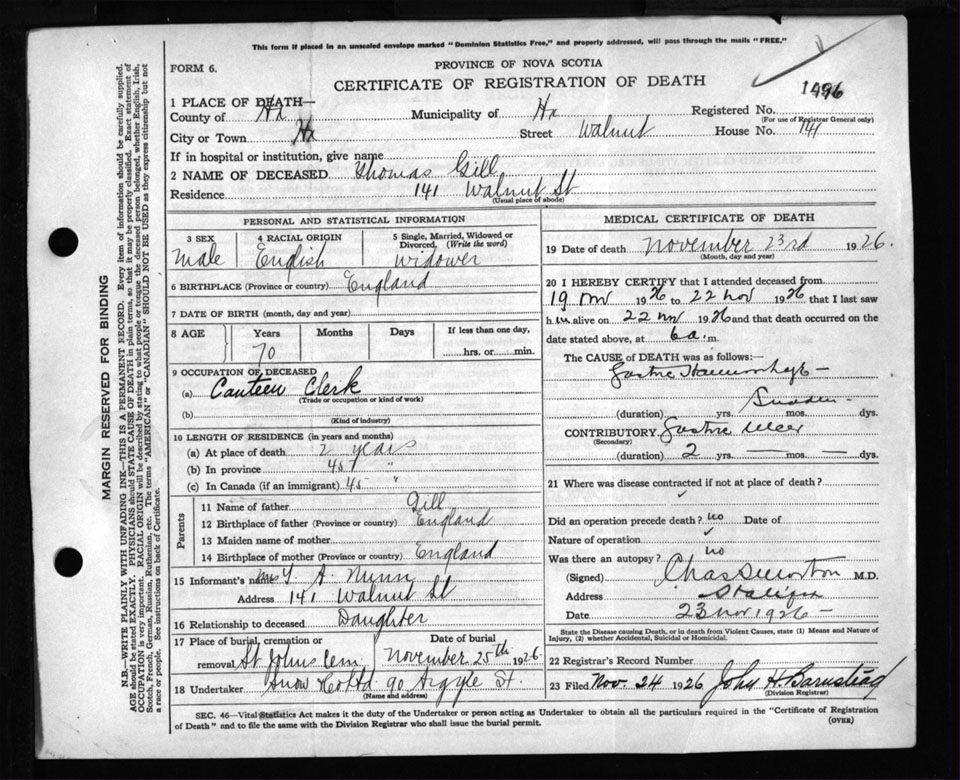 This form if placed in an unsealed envelope marked "Dominion Statistics Free," and properly addressed, will pass through the mails "FREE."
FORM 6.
PROVINCE OF NOVA SCOTIA
CERTIFICATE OF REGISTRATION OF DEATH
1496
1 PLACE OF DEATH—
County of Hx Municipality of Hx Registered No.
(For use of Registrar General only)
City or Town Hx Street Walnut House No. 141
If in hospital or institution, give name
2 NAME OF DECEASED Thomas Gill
Residence 141 Walnut St
(Usual place of abode)
PERSONAL AND STATISTICAL INFORMATION
3 SEX 4 RACIAL ORIGIN 5 Single, Married, Widowed or Divorced, (Write the word)
Male English Widower
6 BIRTHPLACE (Province or country) England
7 DATE OF BIRTH (month, day and year)
8 AGE Years Months Days If less than one day,
70 hrs. or min.
9 OCCUPATION OF DECEASED
(a) Canteen Clerk
(Trade or occupation or kind of work)
(b)
(Kind of industry)
10 LENGTH OF RESIDENCE (in years and months)
(a) At place of death 2 years
(b) In province 45 "
(c) In Canada (if an immigrant) 45 "
Parents
11 Name of father Gill
12 Birthplace of father (Province or country) England
13 Maiden name of mother
14 Birthplace of mother (Province or country) England
15 Informant's name Mrs Y. A. Nunn
Address 141 Walnut St
16 Relationship to deceased Daughter
17 Place of burial, cremation or removal St Johns Cem Date of burial November 25th 1926
18 Undertaker Snow & Co Ltd 90 Argyle St.
(Name and address)
MEDICAL CERTIFICATE OF DEATH
19 Date of death November 23rd 1926.
(Month, day and year)
20 I HEREBY CERTIFY that I attended deceased from
19 Nov 1926 to 22 Nov 1926 that I last saw
him alive on 22 Nov 1926 and that death occurred on the
date stated above, at 6 a. m.
The CAUSE OF DEATH was as follows:
Gastric Haemorrhage —
Sudden
(duration) yrs. mos. dys.
CONTRIBUTORY Gastric Ulcer
(Secondary)
(duration) 2 yrs. — mos. — dys.
21 Where was disease contracted if not at place of death?
Did an operation precede death? no Date of
Nature of operation
Was there an autopsy? no
(Signed) Chas S Morton M.D.
Address Halifax
Date 23 Nov 1926 —
State the Disease causing Death, or in death from Violent Causes, state (1) Means and Nature of Injury, (2) whether Accidental, Suicidal or Homicidal.
22 Registrar's Record Number
23 Filed Nov. 24 1926 John H. Barnstead
(Division Registrar)
SEC. 46—Vital Statistics Act makes it the duty of the Undertaker or person acting as Undertaker to obtain all the particulars required in the "Certificate of Registration
of Death" and to file the same with the Division Registrar who shall issue the burial permit.
(OVER)
MARGIN RESERVED FOR BINDING
N.B.—WRITE PLAINLY WITH UNFADING INK—THIS IS A PERMANENT RECORD. Every item of information should be carefully supplied.
AGE should be stated EXACTLY. PHYSICIANS should STATE CAUSE OF DEATH in plain terms, so that it may be properly classified. Exact statement of
OCCUPATION is very important. RACIAL ORIGIN will be described by stating to what people or tongue the deceased person belonged, whether English, Irish,
Scotch, French, German, Russian, Ruthenian, etc. The terms "AMERICAN" or "CANADIAN" SHOULD NOT BE USED as they express citizenship but not
a race or people. See instructions on back of Certificate.